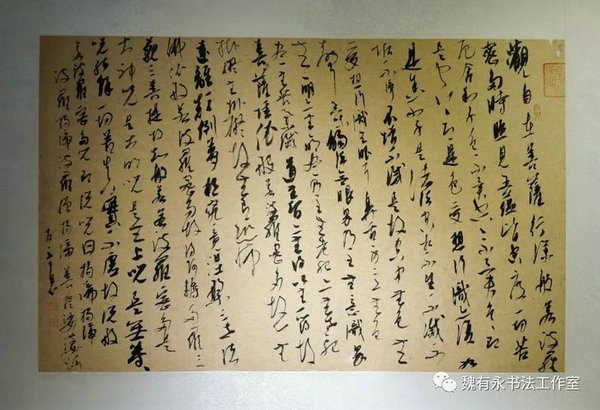 觀自在菩薩行深般若波羅
蜜多時照見五蘊皆空度一切苦
厄舍利子色不異空空不異色色即
是空空即是色受想行識亦復如
是舍利子是諸法空相不生不滅不
垢不淨不增不減是故空中無色無
受想行識無眼耳鼻舌身意無色
聲香味觸法無眼界乃至無意識界
無無明亦無無明盡乃至無老死亦無老死
盡無苦集滅道無智亦無得以無所得故
菩提薩埵依般若波羅蜜多故心無
掛礙無掛礙故無有恐怖
遠離顛倒夢想究竟涅槃三世諸
佛依般若波羅蜜多故得阿耨多羅三
藐三菩提故知般若波羅蜜多是
大神咒是大明咒是無上咒是無等等
咒能除一切苦真實不虛故說般
若波羅蜜多咒即說咒曰揭諦揭諦
波羅揭諦波羅僧揭諦菩提娑婆訶
魏有永书法工作室